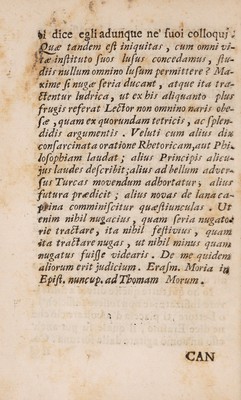 sì dice egli adunque ne' suoi colloquj.
Quæ tandem est iniquitas, cum omni vi-
tæ instituto suos lusus concedamus, stu-
diis nullum omnino lusum permittere? Ma-
xime si nugæ seria ducant, atque ita tra-
ctentur ludrica, ut ex his aliquanto plus
frugis referat Lector non omnino naris obe-
sæ, quam ex quorundam tetricis, ac splen-
didis argumentis. Veluti cum alius diu
consarcinata oratione Rhetoricam, aut Phi-
losophiam laudat; alius Principis alicu-
jus laudes describit; alius ad bellum adver-
sus Turcas movendum adhortatur; alius
futura prædicit; alius novas de lana ca-
prina comminiscitur quæstiunculas. Ut
enim nihil nugacius, quam seria nugato-
rie tractare, ita nihil festivius, quam
ita tractare nugas, ut nihil minus quam
nugatus fuisse videaris. De me quidem
aliorum erit judicium. Erasm. Moria in
Epist. nuncup. ad Thomam Morum.
CAN